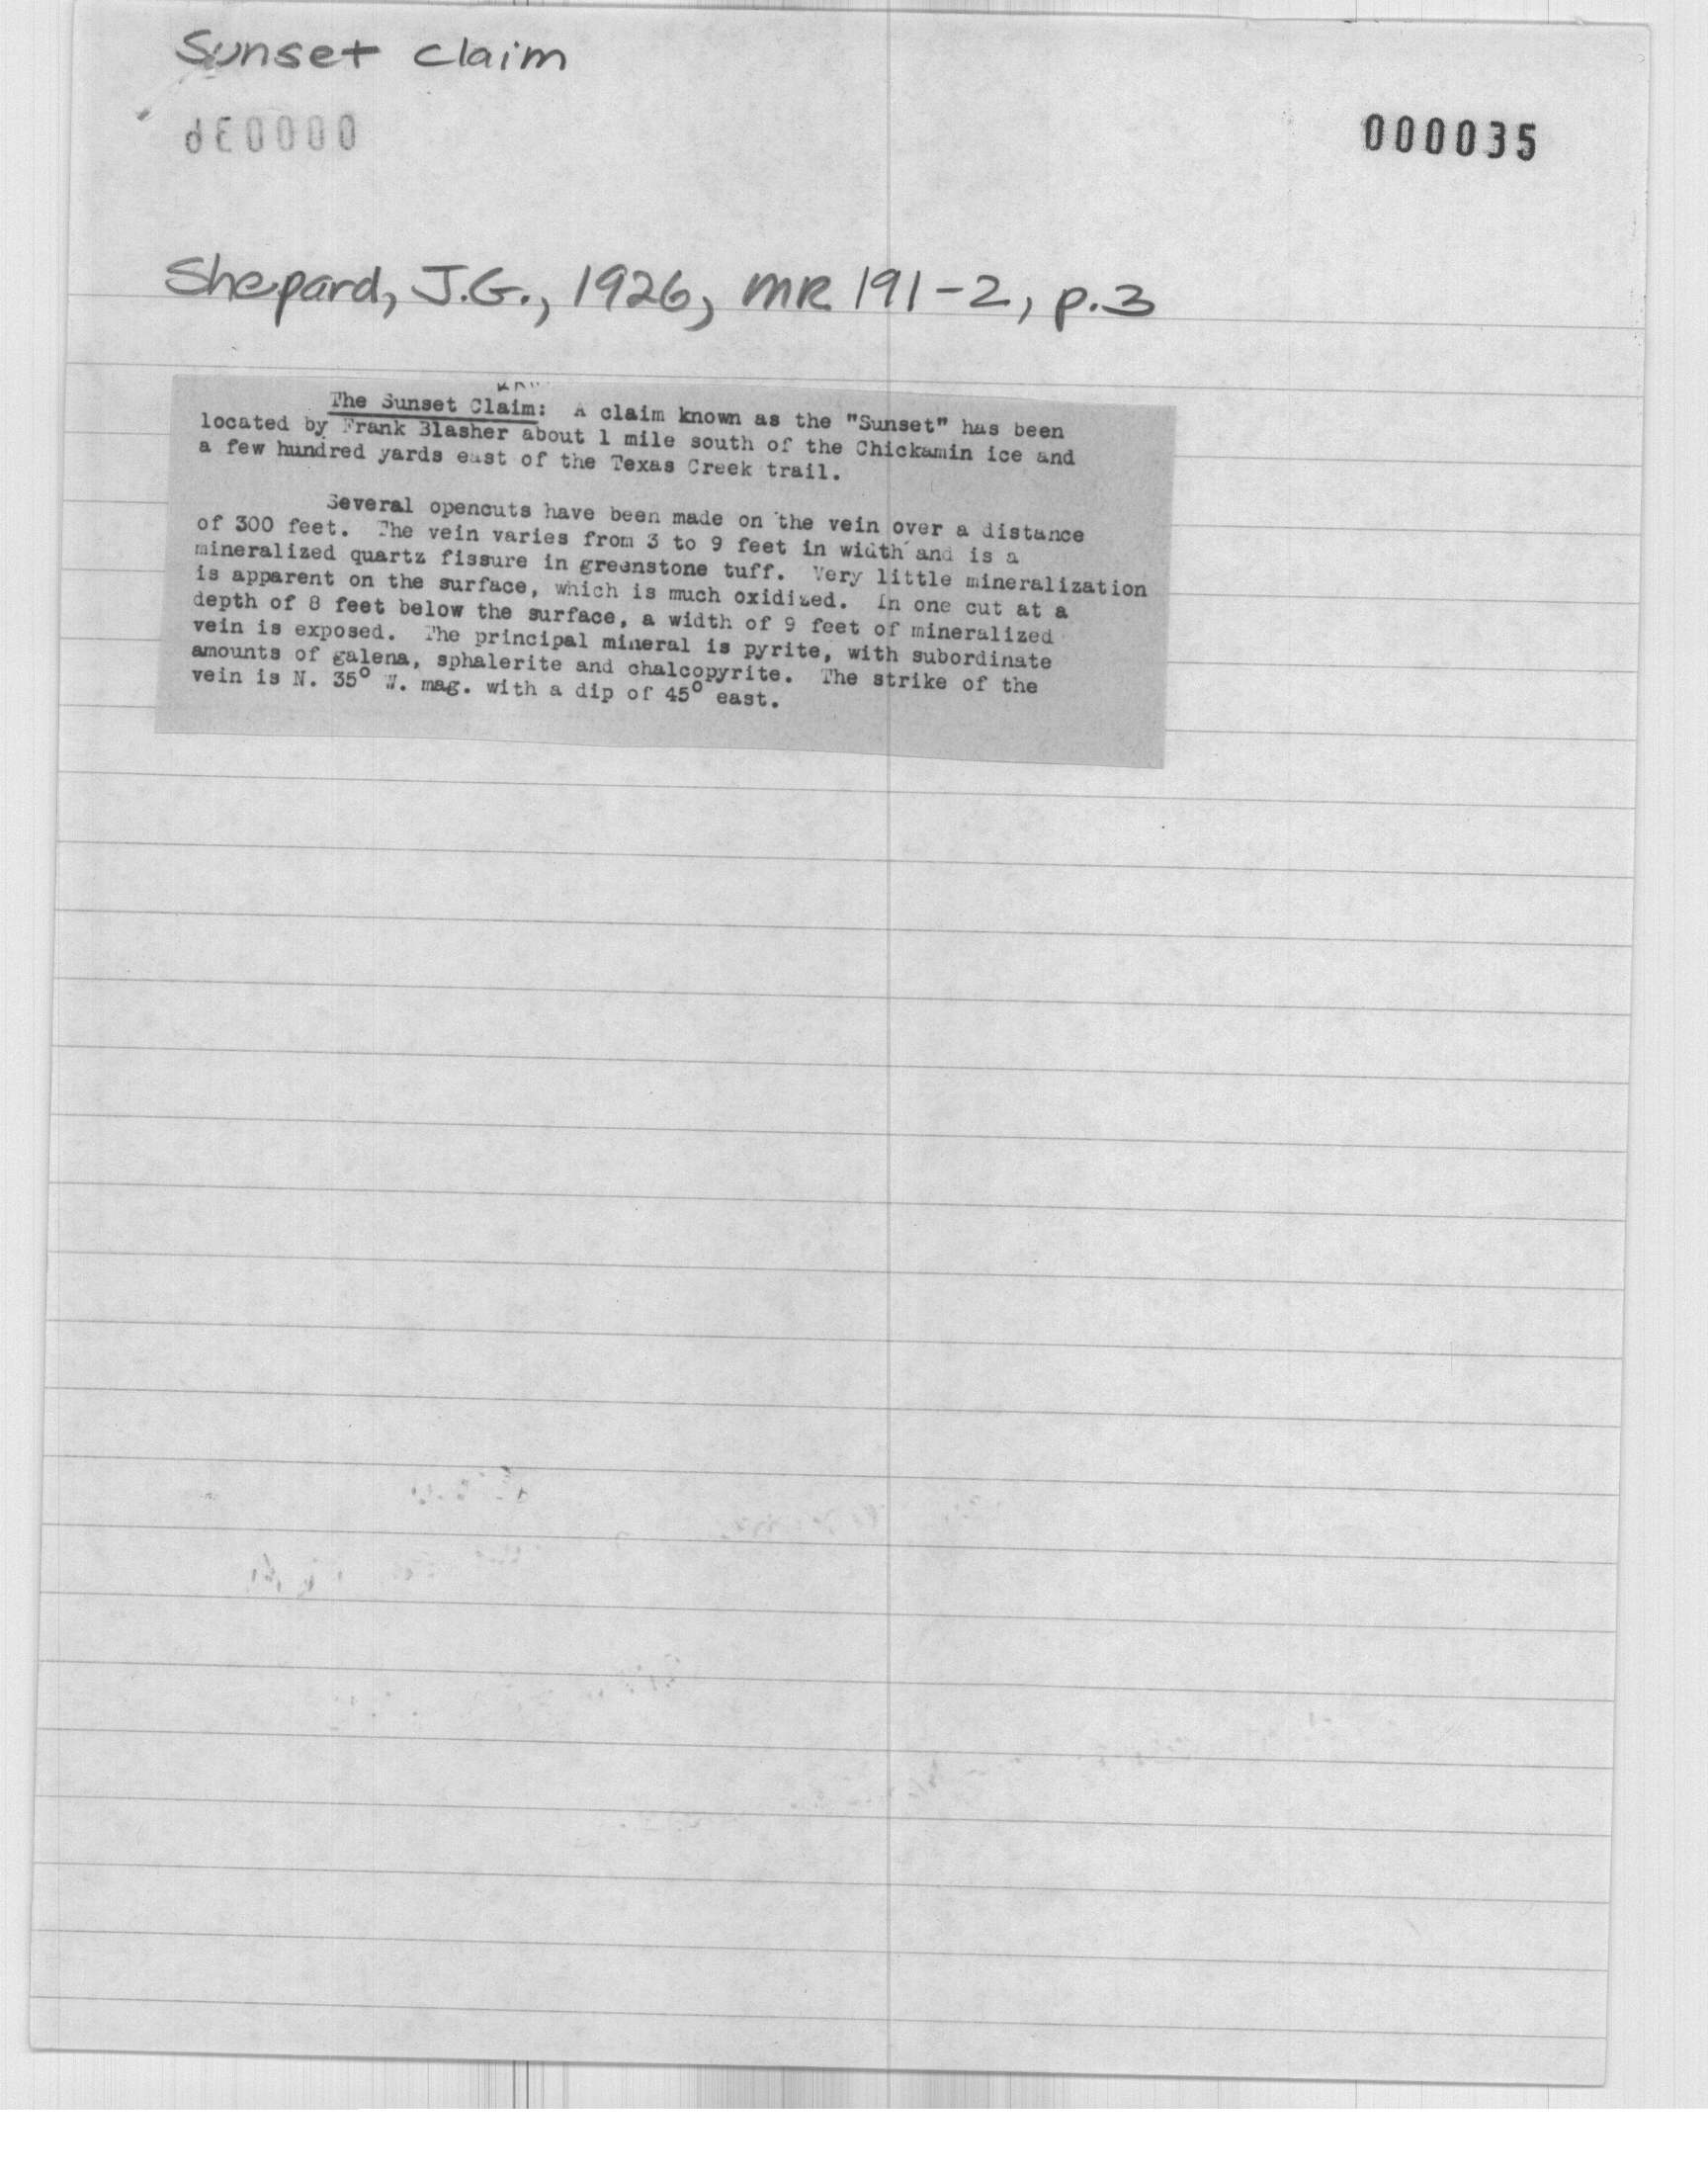 Sunset claim
000035
Shepard, J.G., 1926, MR 191-2, p.3
The Sunset Claim: A claim known as the "Sunset" has been
located by Frank Blasher about 1 mile south of the Chickamin ice and
a few hundred yards east of the Texas Creek trail.
Several opencuts have been made on the vein over a distance
of 300 feet. The vein varies from 3 to 9 feet in width and is a
mineralized quartz fissure in greenstone tuff. Very little mineralization
is apparent on the surface, which is much oxidized. In one cut at a
depth of 8 feet below the surface, a width of 9 feet of mineralized
vein is exposed. The principal mineral is pyrite, with subordinate
amounts of galena, sphalerite and chalcopyrite. The strike of the
vein is N. 35° W. mag. with a dip of 45° east.